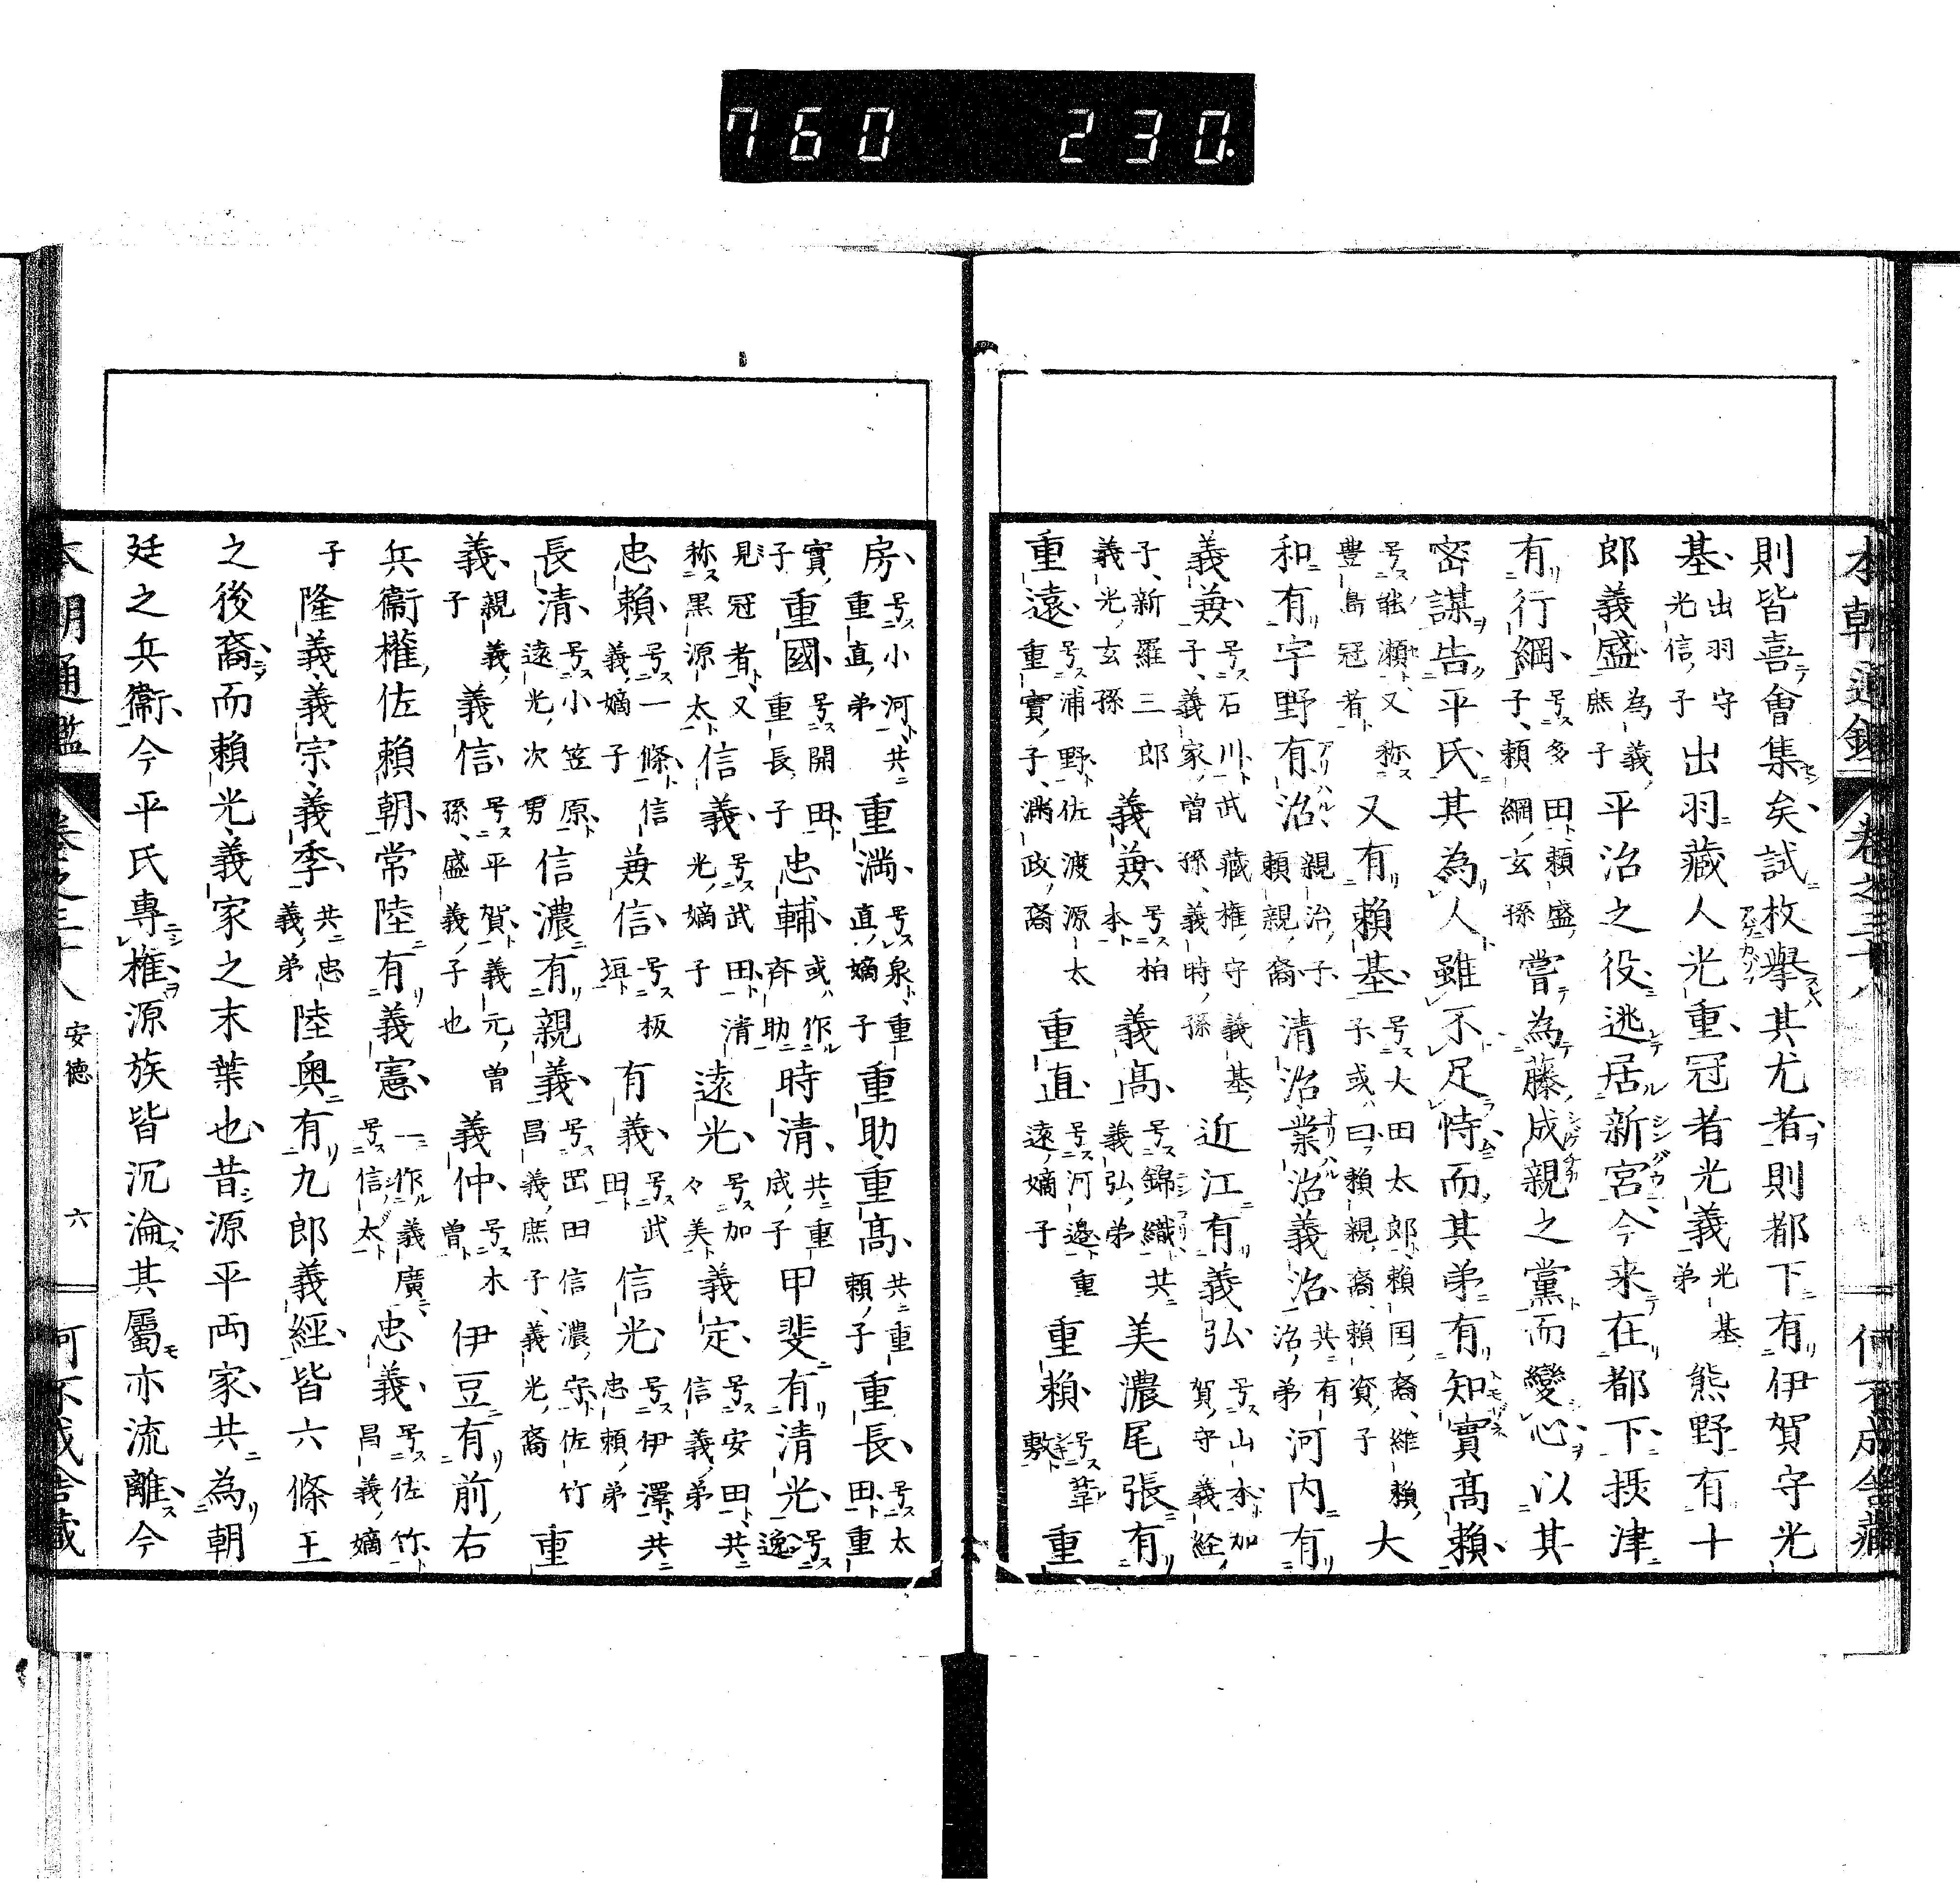 760 230.
本朝通鑑 卷之三十八 何不成舎藏
則皆喜會集矣試枚擧其尤者則都下有伊賀守光
基出羽守光信子出羽藏人光重冠者光義光基弟熊野有十
郎義盛為義庶子平治之役逃居新宮今来在都下摂津
有行綱号多田頼盛子頼綱玄孫嘗為藤成親之黨而變心以其
密謀告平氏其為人雖不足恃而其弟有知實高頼
号能瀬又称豊島冠者又有頼基号大田太郎頼国裔維頼子或曰頼親裔頼資子大
和有宇野有治親治子頼親裔清治業治義治共有治弟河内有
義兼号石川武藏権守義基子義家曽孫義時孫近江有義弘号山本加賀守義経
子新羅三郎義光玄孫義兼号柏木義高号錦織共義弘弟美濃尾張有
重遠号浦野佐渡源太重實子満政裔重直号河邉重遠嫡子重頼号葦敷重
房号小河共重直弟重満号泉重直嫡子重助重高共重頼子重長号太田重
實子重國号開田重長子忠輔或作斉助時清共重成子甲斐有清光号逸
見冠者又称黒源太信義号武田清光嫡子遠光号加々美義定号安田共信義弟
忠頼号一條信義嫡子兼信号板垣有義号武田信光号伊澤共忠頼弟
長清号小笠原遠光次男信濃有親義号岡田信濃守佐竹昌義庶子義光裔重
義親義子義信号平賀義元曽孫盛義子也義仲号木曽伊豆有前右
兵衞權佐頼朝常陸有義憲一作義廣号信太忠義号佐竹昌義嫡
子隆義義宗義季共忠義弟陸奥有九郎義經皆六條王
之後裔而頼光義家之末葉也昔源平両家共為朝
廷之兵衞今平氏專權源族皆沉淪其屬亦流離今
本朝通鑑 卷之三十八 安徳 六 何不成舎藏